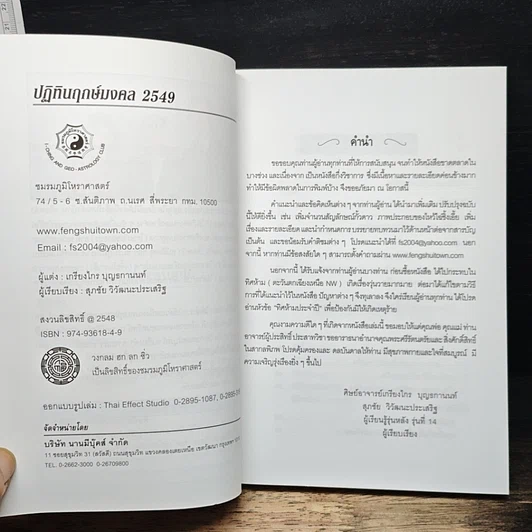 ปฏิทินฤกษ์มงคล 2549
I-CHING AND GEO-ASTROLOGY CLUB
ชมรมภูมิโหราศาสตร์
74 / 5 - 6 ซ.สันติภาพ ถ.นเรศ สี่พระยา กทม. 10500
www.fengshuitown.com
Email : fs2004@yahoo.com
ผู้แต่ง : เกรียงไกร บุญธกานนท์
ผู้เรียบเรียง : สุภชัย วิวัฒนะประเสริฐ
สงวนลิขสิทธิ์ @ 2548
ISBN : 974-93618-4-9
วงกลม ฮก ลก ซิ่ว
เป็นลิขสิทธิ์ของชมรมภูมิโหราศาสตร์
ออกแบบรูปเล่ม : Thai Effect Studio 0-2895-1087, 0-2895
จัดจำหน่ายโดย
บริษัท นานมีบุ๊คส์ จำกัด
11 ซอยสุขุมวิท 31 (สวัสดี) ถนนสุขุมวิท แขวงคลองเตยเหนือ เขตวัฒนา กรุงเทพฯ
TEL. 0-2662-3000 0-26709800
คำนำ
ขอขอบคุณท่านผู้อ่านทุกท่านที่ให้การสนับสนุน จนทำให้หนังสือขาดตลาดใน
บางช่วง และเนื่องจาก เป็นหนังสือกึ่งวิชาการ ซึ่งมีเนื้อหาและรายละเอียดค่อนข้างมาก
ทำให้มีข้อผิดพลาดในการพิมพ์บ้าง จึงขออภัยมา ณ โอกาสนี้
คำแนะนำและข้อคิดเห็นต่าง ๆ จากท่านผู้อ่าน ได้นำมาเพิ่มเติม ปรับปรุงฉบับ
นี้ให้ดียิ่งขึ้น เช่น เพิ่มจำนวนสัญลักษณ์กั้วดาว ภาพประกอบของไหว้ไฉ่ซิ้งเอี้ย เพิ่ม
เรื่องและรายละเอียด และนำกำหนดการ บรรยายทบทวนมาไว้ด้านหน้าต่อจากสารบัญ
เป็นต้น และขอน้อมรับคำติชมต่าง ๆ โปรดแนะนำได้ที่ fs2004@yahoo.com นอก
จากนี้ หากท่านมีข้อสงสัยใด ๆ สามารถตั้งคำถามผ่าน www.fengshuitown.com
นอกจากนี้ ได้รับแจ้งจากท่านผู้อ่านบางท่าน ก่อนซื้อหนังสือ ได้ไปกระทบใน
ทิศห้าม ( ตะวันตกเฉียงเหนือ NW ) เกิดเรื่องวุ่นวายมากมาย ต่อมาได้แก้ไขตามวิธี
การที่ได้แนะนำไว้ในหนังสือ ปัญหาต่าง ๆ จึงทุเลาลง จึงใคร่เตือนผู้อ่านทุกท่าน ได้โปรด
อ่านหัวข้อ "ทิศห้ามประจำปี" เพื่อป้องกันมิให้เกิดเหตุร้าย
คุณงามความดีใด ๆ ที่เกิดจากหนังสือเล่มนี้ ขอมอบให้แด่คุณพ่อ คุณแม่ ท่าน
อาจารย์ผู้ประสิทธิ์ ประสาทวิชา ขออาราธนาอำนาจคุณพระศรีรัตนตรัยและ สิ่งศักดิ์สิทธิ์
ในสากลพิภพ โปรดคุ้มครองและ ดลบันดาลให้ท่าน มีสุขภาพกายและใจที่สมบูรณ์ มี
ความเจริญรุ่งเรืองยิ่ง ๆ ขึ้นไป
ศิษย์อาจารย์เกรียงไกร บุญธกานนท์
สุภชัย วิวัฒนะประเสริฐ
ผู้เรียนรู้รุ่นหลัง รุ่นที่ 14
ผู้เรียบเรียง